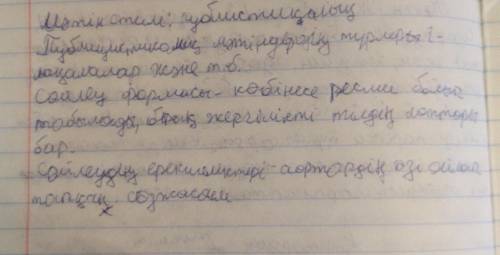 Мәтін стилі; публистикалық
Публицистикалық мәтіндердің түрлері -
мақалалар және т.б.
Сөйлеу формасы - көбінесе ресми болып
табылады, бірақ жергілікті тілдің
бар.
Сөйлеудің ерекшеліктері - автордың өзі ойлап
тапқан сөзжасам